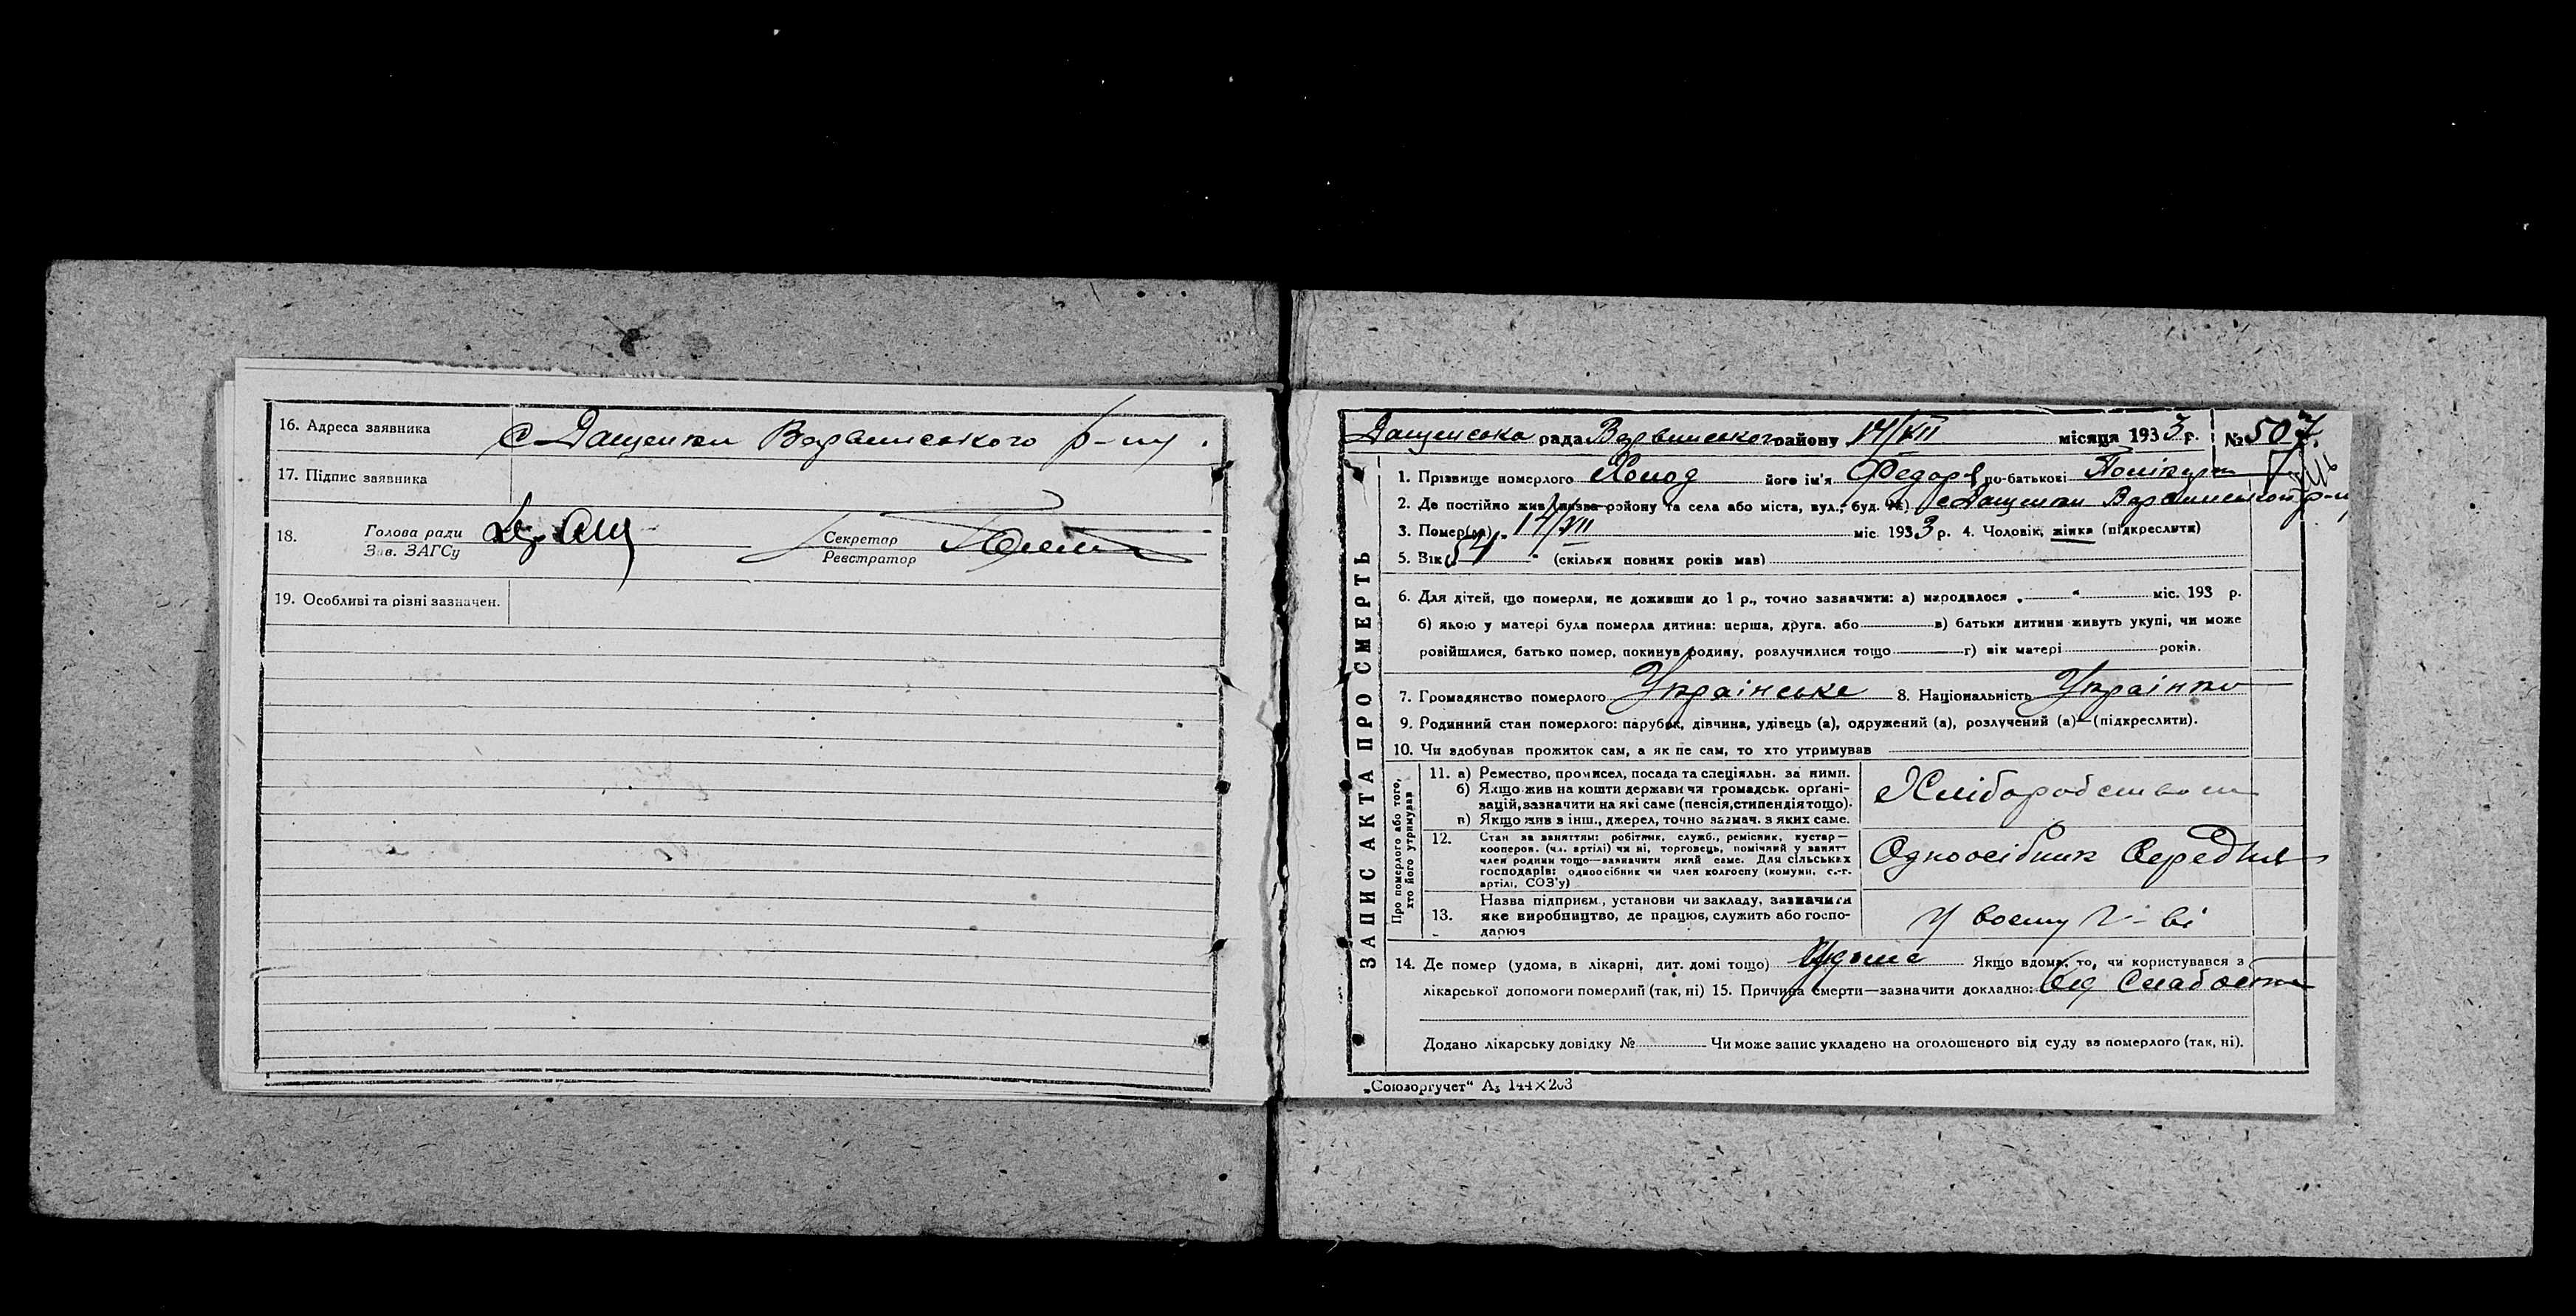 16. Адреса заявника с Дащенки Варвинського р-ну.
17. Підпис заявника
18. Голова ради
Зав. ЗАГСу
Секретар
Реєстратор
19. Особливі та різні зазначен.
ЗАПИС АКТА ПРО СМЕРТЬ
Дащенська рада Варвинського району 14/VII місяця 1933 р. № 507.
1. Прізвище померлого Холод його ім'я Федора по-батькові
2. Де постійно жив (назва району та села або міста, вул., буд. №) с Дащенки Варвинського р-н
3. Помер(ла) „ 14/VII міс. 1933 р. 4. Чоловік, жінка (підкреслити)
5. Вік „ 54 " (скільки повних років мав)
6. Для дітей, що померли, не доживши до 1 р., точно зазначити: а) народилося „ " міс. 193 р.
б) якою у матері була померла дитина: перша, друга, або в) батьки дитини живуть укупі, чи може
розійшлися, батько помер, покинув родину, розлучилися тощо г) вік матері років.
7. Громадянство померлого Українське 8. Національність Українка
9. Родинний стан померлого: парубок, дівчина, удівець (а), одружений (а), розлучений (а)—(підкреслити).
10. Чи здобував прожиток сам, а як не сам, то хто утримував
Про померлого або того,
хто його утримував
11. а) Ремество, промисел, посада та спеціяльн. за ними.
б) Якщо жив на кошти держави чи громадськ. органі-
зацій, зазначити на які саме (пенсія, стипендія тощо).
в) Якщо жив з інш., джерел, точно зазнач. з яких саме.
Хліборобством
12. Стан за заняттям: робітник, служб., ремісник, кустар—
кооперов. (чл. артілі) чи ні, торговець, помічний у занятт
член родини тощо—зазначити який саме. Для сільських
господарів: одноосібник чи член колгоспу (комуни, с.-г.
артілі, СОЗ'у)
Одноосібник Середняк
13. Назва підприєм., установи чи закладу, зазначити
яке виробництво, де працює, служить або госпо-
дарює
У воєму г-ві
14. Де помер (удома, в лікарні, дит. домі тощо) Удома Якщо вдома, то, чи користувався з
лікарської допомоги померлий (так, ні) 15. Причина смерти—зазначити докладно: Від Слабости
Додано лікарську довідку № Чи може запис укладено на оголошеного від суду за померлого (так, ні).
„Союзоргучет" А₅ 144×203